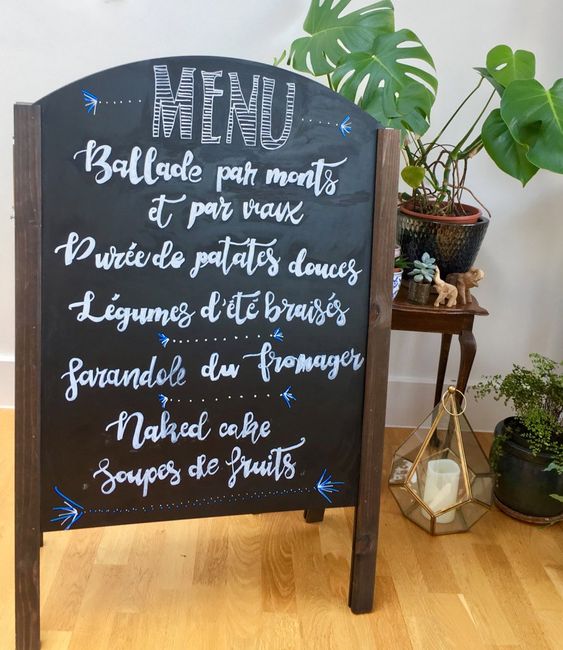 MENU
Ballade par monts
et par vaux
Purée de patates douces
Légumes d'été braisés
farandole du fromager
Naked cake
Soupes de fruits